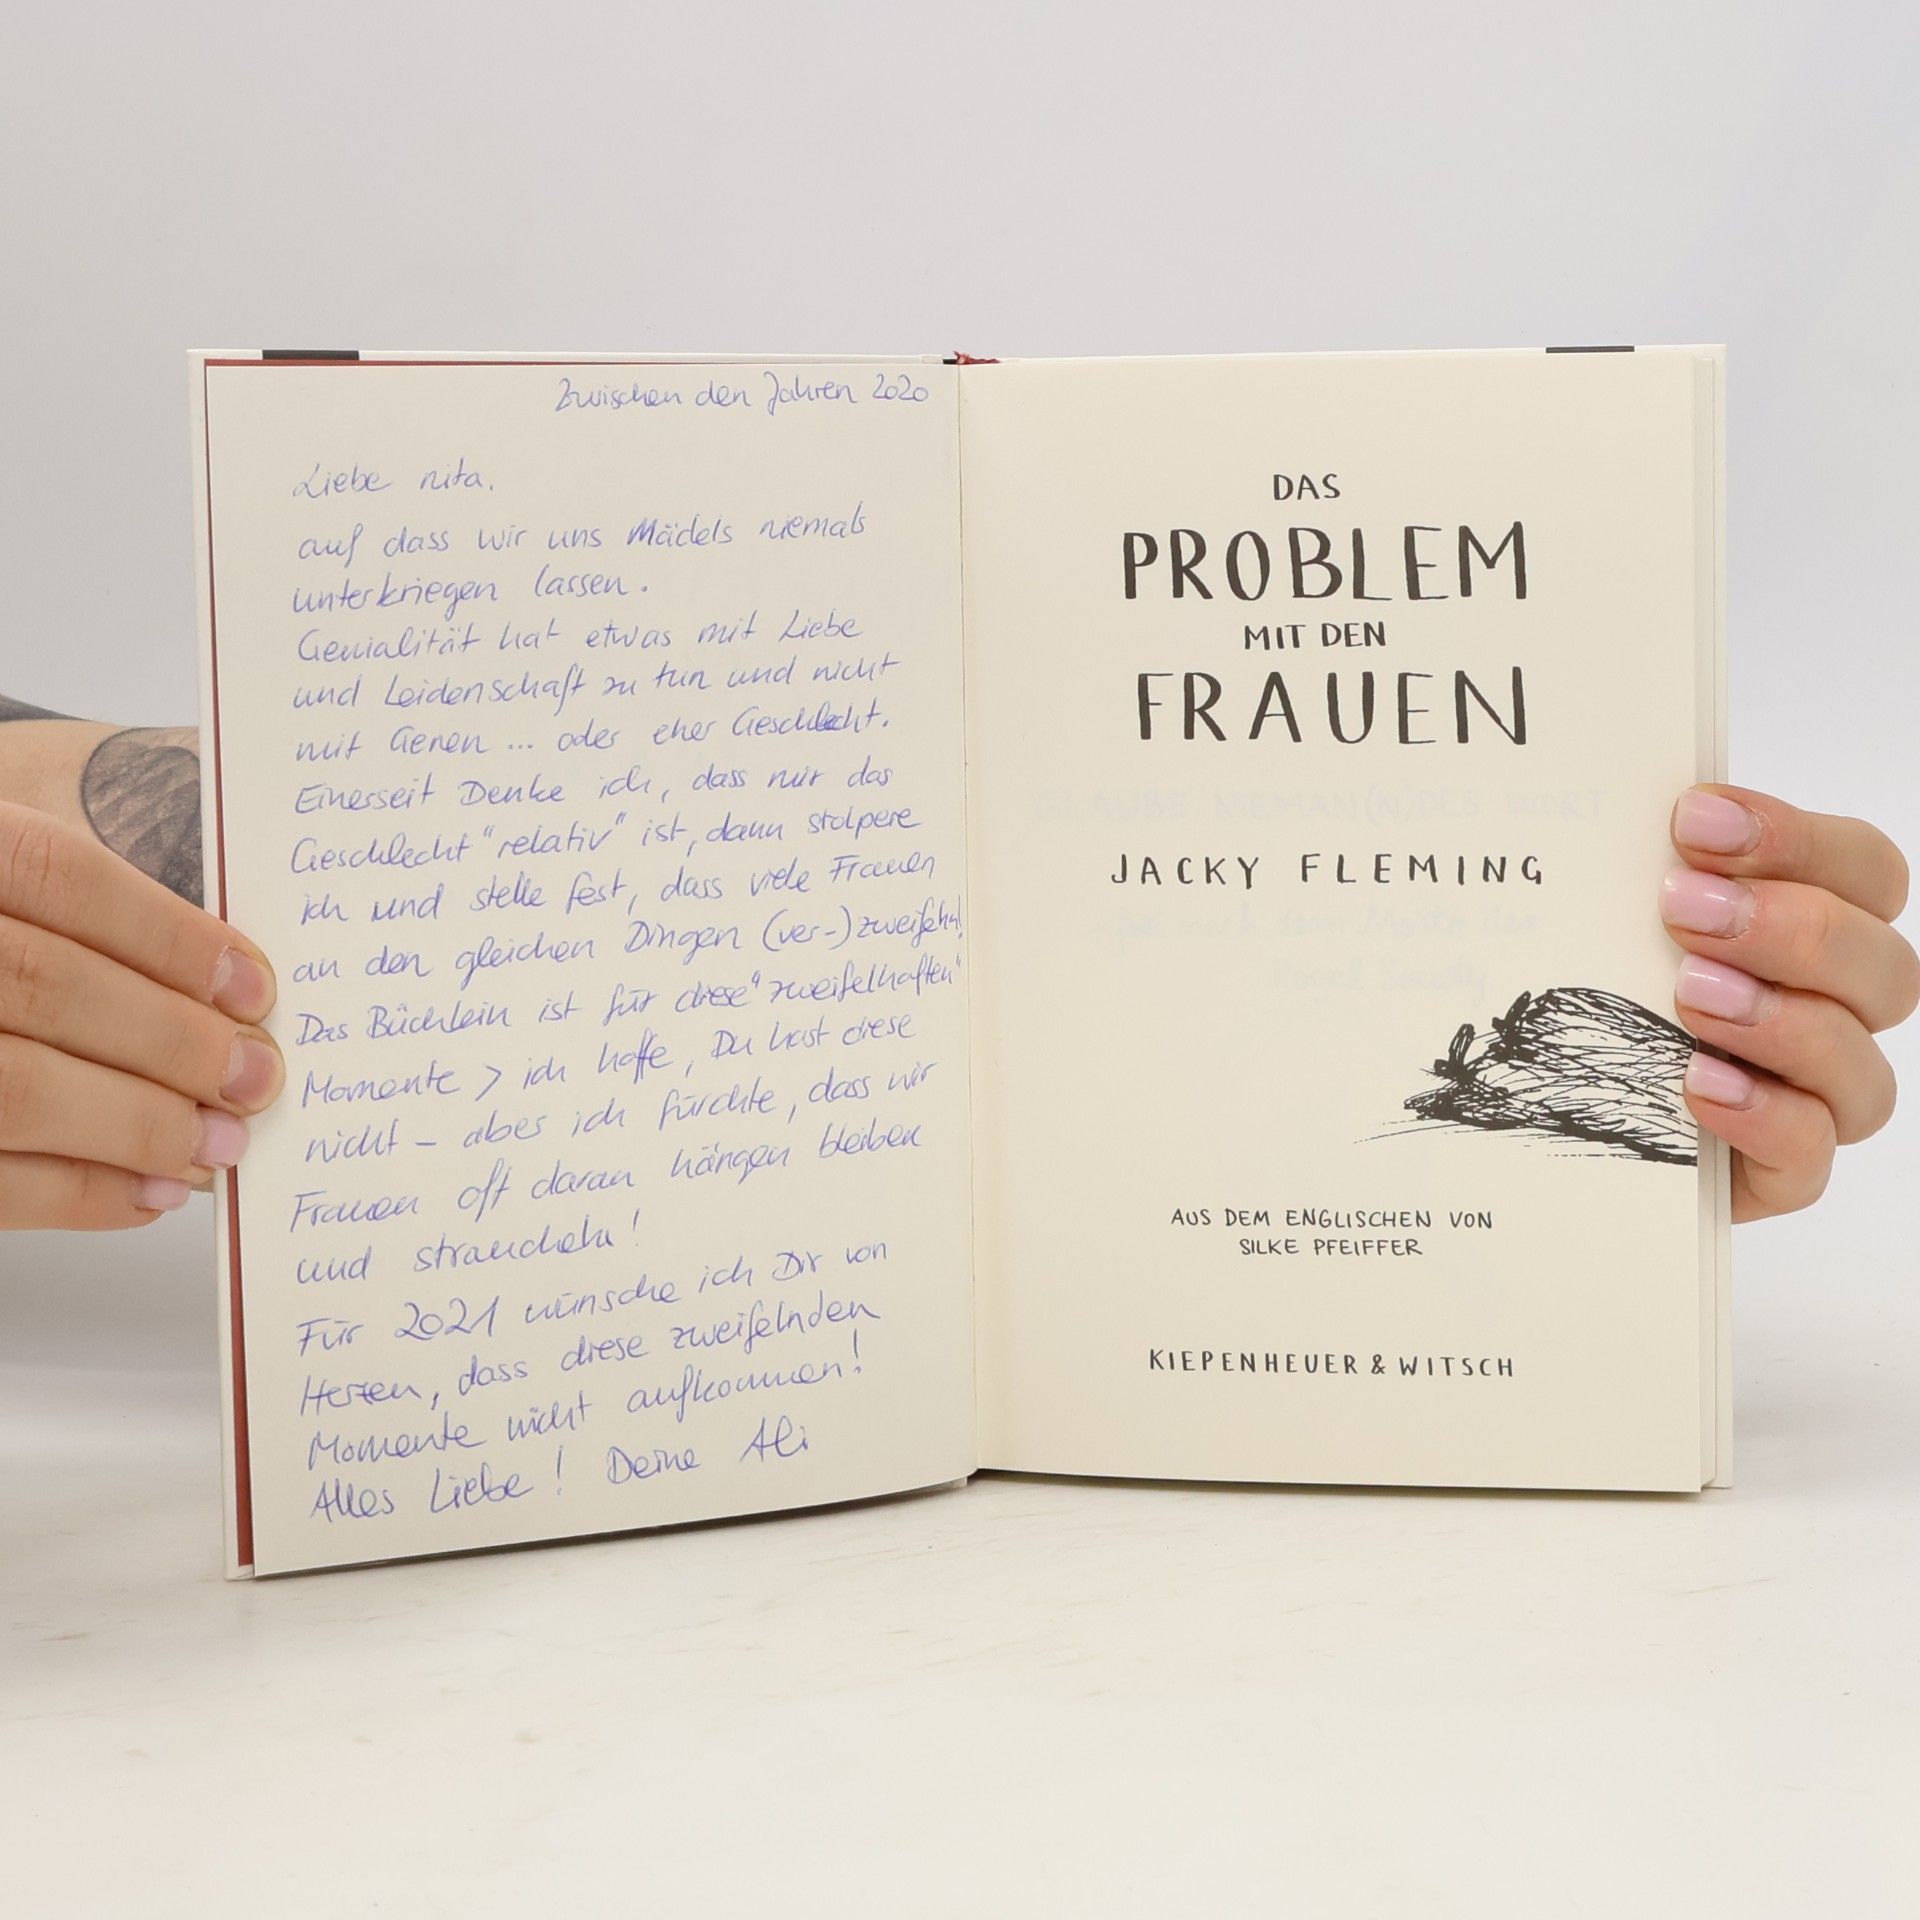 Zwischen den Jahren 2020
Liebe Nita.
auf dass wir uns Mädels niemals
unterkriegen lassen.
Genialität hat etwas mit Liebe
und Leidenschaft zu tun und nicht
mit Genen ... oder eher Geschlecht.
Einerseit Denke ich, dass mir das
Geschlecht "relativ" ist, dann stolpere
ich und stelle fest, dass viele Frauen
an den gleichen Dingen (ver-)zweifeln!
Das Büchlein ist für diese "zweifelhaften"
Momente > ich hoffe, Du hast diese
nicht – aber ich fürchte, dass wir
Frauen oft daran hängen bleiben
und straucheln!
Für 2021 wünsche ich Dir von
Herzen, dass diese zweifelnden
Momente nicht aufkommen!
Alles Liebe! Deine Ali
DAS
PROBLEM
MIT DEN
FRAUEN
GLAUBE NIEMAN(N)DES WORT
JACKY FLEMING
AUS DEM ENGLISCHEN VON
SILKE PFEIFFER
KIEPENHEUER & WITSCH